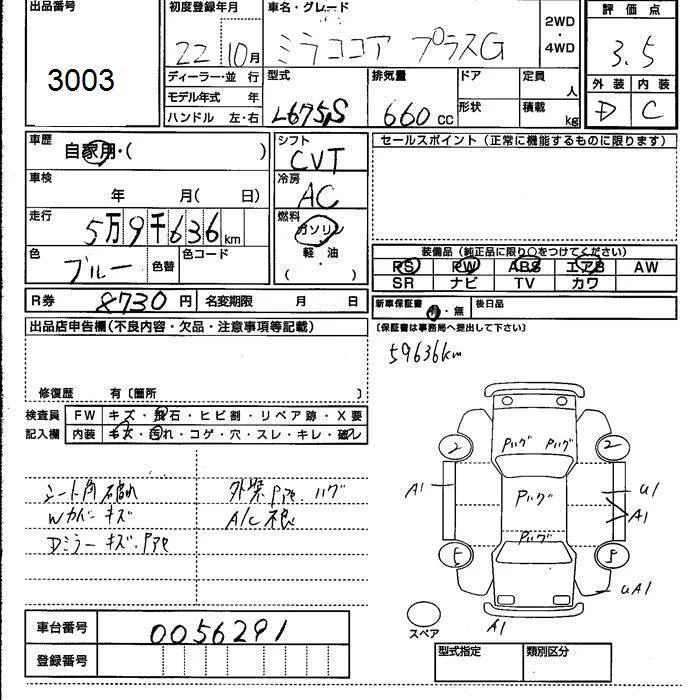 出品番号 初度登録年月 車名・グレード 評価点
3003 22 10月 ミラココア プラスG 2WD・4WD 3.5
ディーラー・並行 型式 排気量 ドア 定員 人 外装 内装
モデル年式 年
ハンドル 左・右 L675S 660cc 形状 積載 kg D C
車歴 自家用・( ) シフト CVT セールスポイント(正常に機能するものに限ります)
車検 年 月( 日) 冷房 AC
走行 5万9千636km 燃料 ガソリン
軽・油
( )
色 ブルー 色替 色コード
装備品(純正品に限り○をつけてください)
PS PW ABS エアB AW
SR ナビ TV カワ
R券 8730円 名変期限 月 日 新車保証書 有・無 後日品
出品店申告欄(不良内容・欠品・注意事項等記載) 〔保証書は事務局へ提出して下さい〕
59636km
修復歴 有〔箇所 〕
検査員 FW キズ・飛石・ヒビ割・リペア跡・X要
記入欄 内装 キズ・汚れ・コゲ・穴・スレ・キレ・破レ
シート角破れ 外装
Wカバーキズ A/C不良
Dミラーキズ
2 2
A1 U1
A1
5 5
UA1
A1
スペア
車台番号 0056291
登録番号
型式指定 類別区分